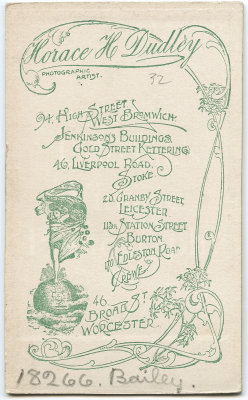 Horace H Dudley
PHOTOGRAPHIC
ARTIST.
32
94, HIGH STREET,
WEST BROMWICH.
JENKINSON'S BUILDINGS
GOLD STREET KETTERING
46, LIVERPOOL ROAD,
STOKE
28 GRANBY STREET
LEICESTER
113A STATION STREET
BURTON
EDLESTON ROAD
CREWE
46
BROAD ST
WORCESTER
18266. Bailey.